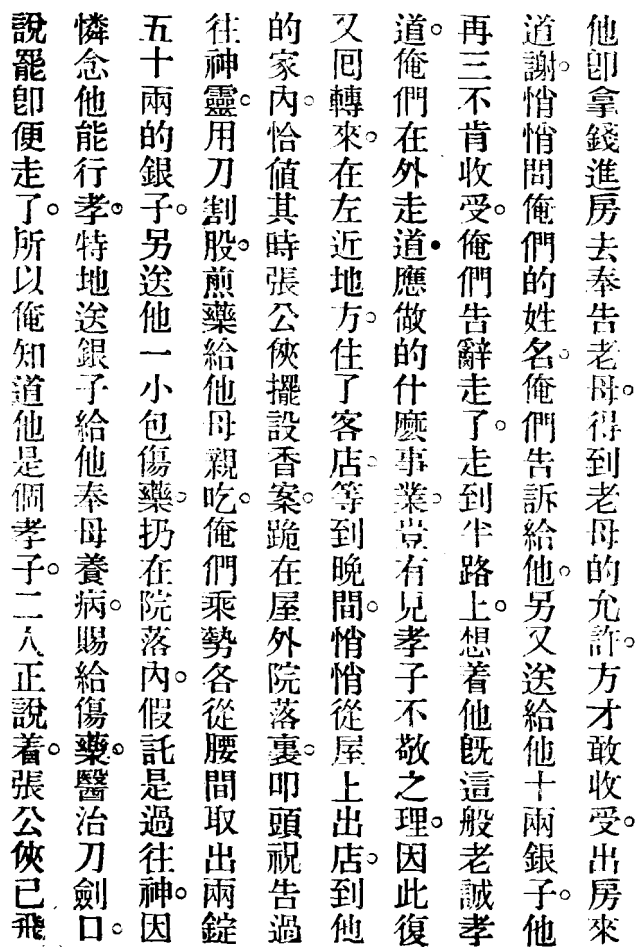 他卽拿錢進房去奉告老母。得到老母的允許。方才敢收受。出房來
道謝。悄悄問俺們的姓名。俺們告訴給他。另又送給他十兩銀子。他
再三不肯收受。俺們告辭走了。走到半路上。想着他既這般老誠孝
道。俺們在外走道。應做的什麽事業。豈有見孝子不敬之理。因此復
又囘轉來。在左近地方。住了客店。等到晚間。悄悄從屋上出店。到他
的家內。恰值其時張公俠擺設香案。跪在屋外院落裏。叩頭祝告過
往神靈。用刀割股。煎藥給他母親吃。俺們乘勢各從腰間取出兩錠
五十兩的銀子。另送他一小包傷藥。扔在院落內。假託是過往神。因
憐念他能行孝。特地送銀子給他奉母養病。賜給傷藥。醫治刀劍口。
說罷卽便走了。所以俺知道他是個孝子。二人正說着。張公俠已飛